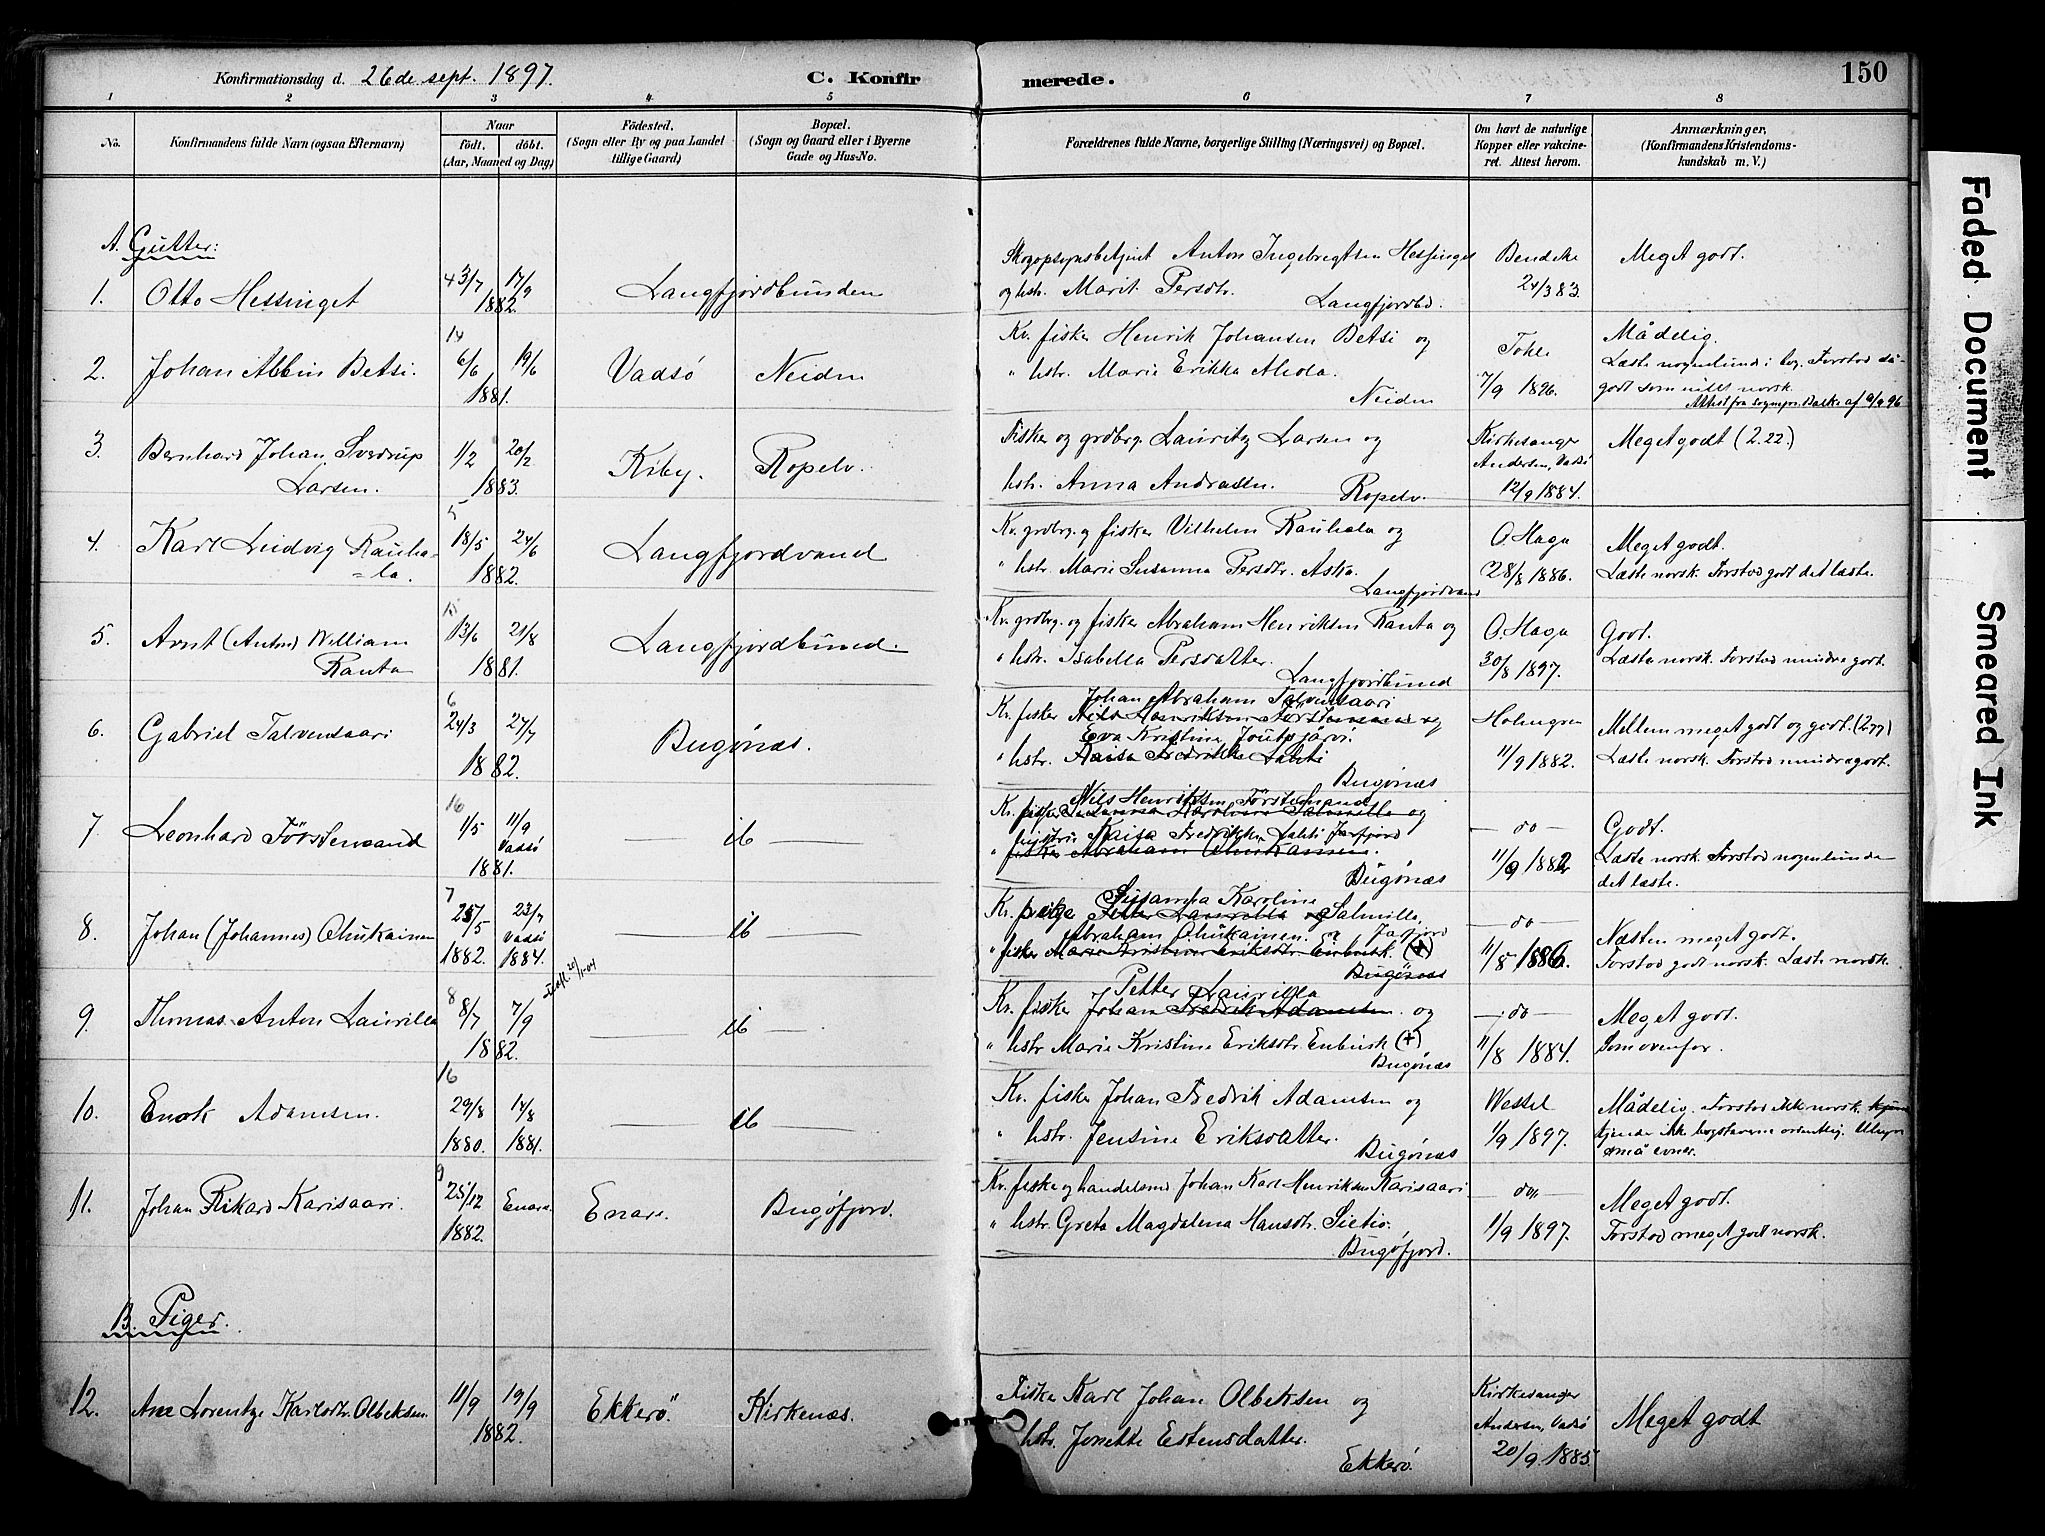 Konfirmationsdag d. 26de sept. 1897.
C. Konfirmerede.
150
1 2 3 4 5 6 7 8
No.
Konfirmandens fulde Navn (ogsaa Efternavn)
Naar
født. døbt.
(Aar, Maaned og Dag)
Födested.
(Sogn eller By og paa Landet
tillige Gaard)
Bopæl.
(Sogn og Gaard eller i Byerne
Gade og Hus-No.
Forældrenes fulde Navne, borgerlige Stilling (Næringsvei) og Bopæl.
Om havt de naturlige
Kopper eller vakcine-
ret. Attest herom.
Anmærkninger.
(Konfirmandens Kristendoms-
kundskab m. V.)
A. Gutter:
1. Otto Hessinget
3/7 17/9
1882.
Langfjordbunden
Skogopsynsbetjent Anton Ingebregtsen Hessinget
og hstr. Marit Persdtr. Langfjordbd.
Bendeke
24/3 83.
Meget godt.
2. Johan Abbin Betsi.
14
6/6 19/6
1881.
Vadsö
Neiden
Kv. fisker Henrik Johansen Betsi og
" hstr. Marie Erikka Alida.
Neiden
7/9 1896.
Mådelig.
godt som intet norsk.
Attest fra sognepr. Balke af 9/9 96
3. Bernhard Johan Sverdrup
Larsen.
1/2 20/2
1883.
Kiby.
Ropelv.
Fisker og grdbrg. Lauritz Larsen og
hstr. Anna Andrasen. Ropelv.
Kirkesanger
Andersen, Vadsö
12/9 1884.
Meget godt (2.22.)
4. Karl Ludvig Rauha-
=la.
5
18/5 24/6
1882.
Langfjordvand
Kv. grdbrg. og fisker Vilhelm Rauhala og
" hstr. Marie Susanna Persdtr. Aska.
Langfjordvand
O. Haga
28/8 1886.
Meget godt.
Læste norsk. Forstod godt det læste.
5. Arnt (Anton) William
Ranta
13/6 21/8
1881.
Langfjordbund.
Kv. grdbrg. og fisker Abraham Henriksen Ranta og
" hstr. Isabella Persdatter.
Langfjordbund
O. Haga
30/8 1897.
Godt.
Læste norsk. Forstod mindre godt.
6. Gabriel Talvensaari
6
24/3 27/7
1882.
Bugönæs.
Johan Abraham Talvensaari
Kv. fisker Nils Henriksen Förstemand og
Eva Kristine Joutsjärvi
" hstr. Kaisa Fredrikke Lahti
Bugönæs
Holmgren
11/9 1882.
Mellem meget godt og godt. (2.77)
Læste norsk. Forstod mindre godt.
7 Leonhard Förstemand
16
1/5 11/9
Vadsö
1881.
— ib —
Nils Henriksen Förstemand
Kv. fisker Susanna Karoline Salmilla og
hustru Kaisa Fredrikke Lahti Jarfjord
" fisker Abraham Ohukainen.
Bugönæs
— do —
11/9 1882
Godt.
Læste norsk. Forstod nogenlunde
det læste.
8. Johan (Johannes) Ohukainen
7
25/5 23/7
Vadsö
1882. 1884.
— ib —
Susanna Karoline
Kv. pige Petter Laurilla og Salmilla,
Abraham Ohukainen. Jarfjord
" fisker Marie Kristine Eriksdtr. Enbusk (+)
Bugönæs
— do —
11/8 1886.
Næsten meget godt.
Forstod godt norsk. Læste norsk.
9. Thomas Anton Laurilla
8
8/7 7/9
1882.
— ib —
Petter Laurilla
Kv. fisker Johan Fredrik Adamsen og
" hstr Marie Kristine Eriksdtr. Enbusk (+)
Bugönæs
— do —
11/8 1884.
Meget godt.
Som ovenfor.
10. Enok Adamsen.
16
29/8 14/8
1880. 1881.
— ib —
Kv. fisker Johan Fredrik Adamsen og
" hstr. Jensine Eriksdatter.
Bugönæs
Wessel
1/9 1897.
Mådelig. Forstod ikke norsk.
kjender ikke bogstaverne ordentlig. Uhyre
små evner.
11. Johan Rikard Karisaari.
9
25/12 Enare.
1882.
Enare.
Bugöfjord.
Kv. fisker og handelsmd Johan Karl Henriksen Karisaari
" hstr. Greta Magdalena Hansdtr. Sietiö.
Bugöfjord.
— do —
1/9 1897.
Meget godt.
Forstod meget godt norsk.
B. Piger.
12. Ane Lorentze Karlsdtr. Olbeksen.
11/9 19/9
1882.
Ekkerö
Kirkenæs.
Fisker Karl Johan Olbeksen og
hstr. Jonette Estensdatter.
Ekkerö.
Kirkesanger
Andersen, Vadsö
20/9. 1885.
Meget godt
Faded Document
Smeared Ink